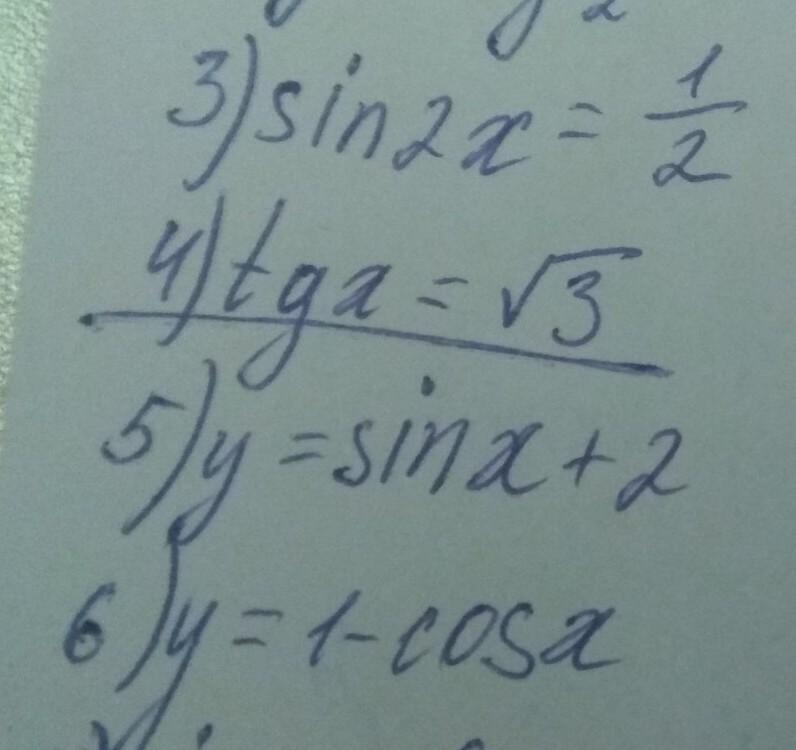 3) sin2x = 1/2
4) tgx = √3
5) y = sinx + 2
6) y = 1 - cosx